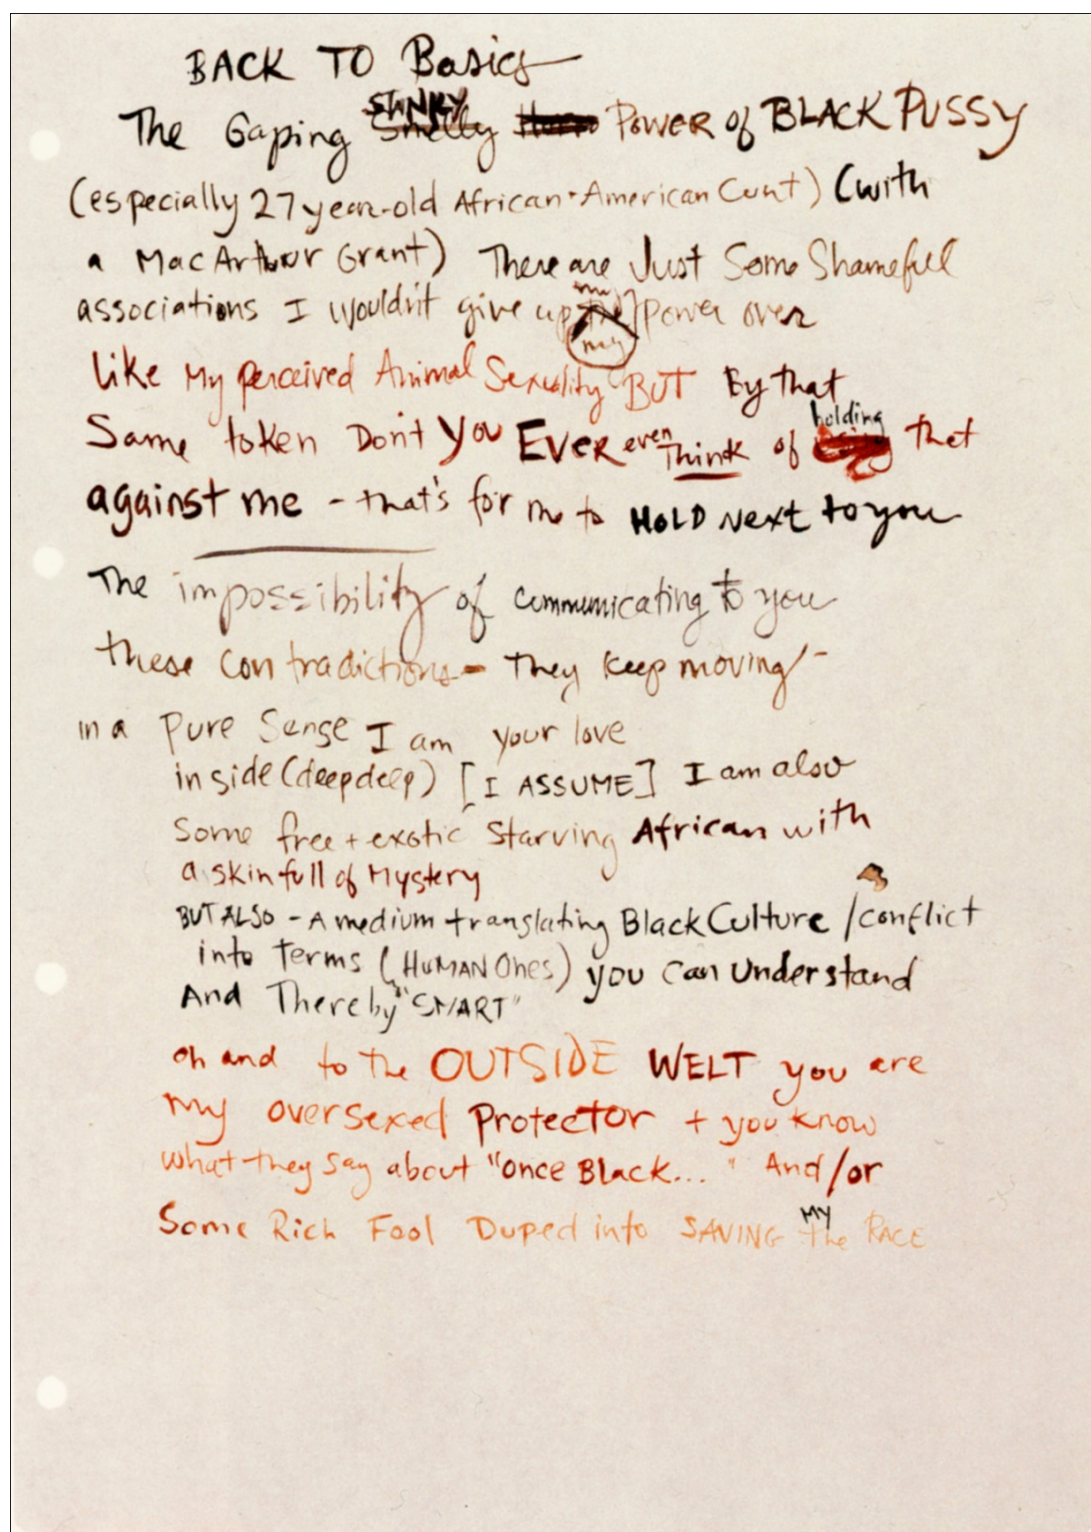 BACK TO Basics
The Gaping STINKY Smelly Power of BLACK PUSSY
(especially 27 year-old African-American Cunt) (with
a MacArthur Grant) There are Just Some Shameful
associations I wouldn't give up my the my power over
Like My perceived Animal Sexuality BUT By that
Same token Don't You EVER even Think of holding that
against me - that's for me to HOLD Next to you
The impossibility of communicating to you
these contradictions - They keep moving -
in a Pure Sense I am your love
inside (deep deep) [I ASSUME] I am also
Some free + exotic Starving African with
a skin full of Mystery
BUT ALSO - A medium translating Black Culture / conflict
into Terms (HUMAN Ones) you can Understand
And Thereby "SMART"
oh and to the OUTSIDE WELT you are
my oversexed Protector + you know
what they say about "once Black..." And/or
Some Rich Fool Duped into SAVING MY the RACE